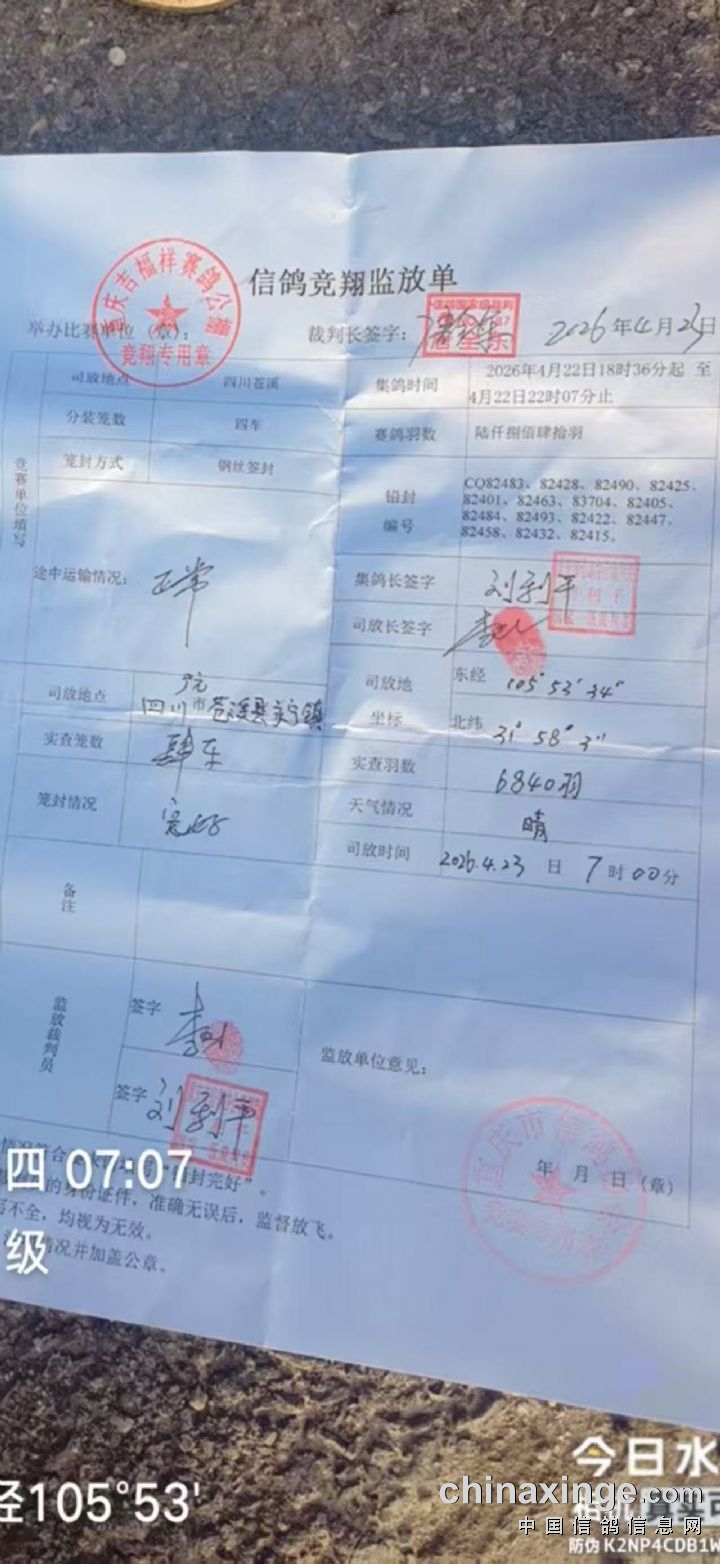 信鸽竞翔监放单
重庆吉福祥赛鸽公棚
竞翔专用章
举办比赛单位（章）：
裁判长签字：
2026年4月23日
竞赛单位填写
司放地点 四川苍溪
集鸽时间 2026年4月22日18时36分起 至
4月22日22时07分止
分装笼数 四车
赛鸽羽数 陆仟捌佰肆拾羽
笼封方式 钢丝签封
铅封
编号
CQ82483、82428、82490、82425、
82401、82463、83704、82405、
82484、82493、82422、82447、
82458、82432、82415。
途中运输情况： 正常
集鸽长签字 刘利平
司放长签字
司放地
坐标
东经 105°53′34″
北纬 31°58′3″
司放地点
四川 市 苍溪县
实查笼数 肆车
实查羽数 6840羽
笼封情况 完好
天气情况 晴
司放时间 2026.4.23 日 7时00分
备注
监放裁判员
签字
签字 刘利平
监放单位意见：
重庆市信鸽
年 月 日（章）
封完好”。
的身份证件，准确无误后，监督放飞。
不全，均视为无效。
情况并加盖公章。
四 07:07
级
径105°53'
今日水
相机
chinaxinge.com
中国信鸽信息网
防伪 K2NP4CDB1W